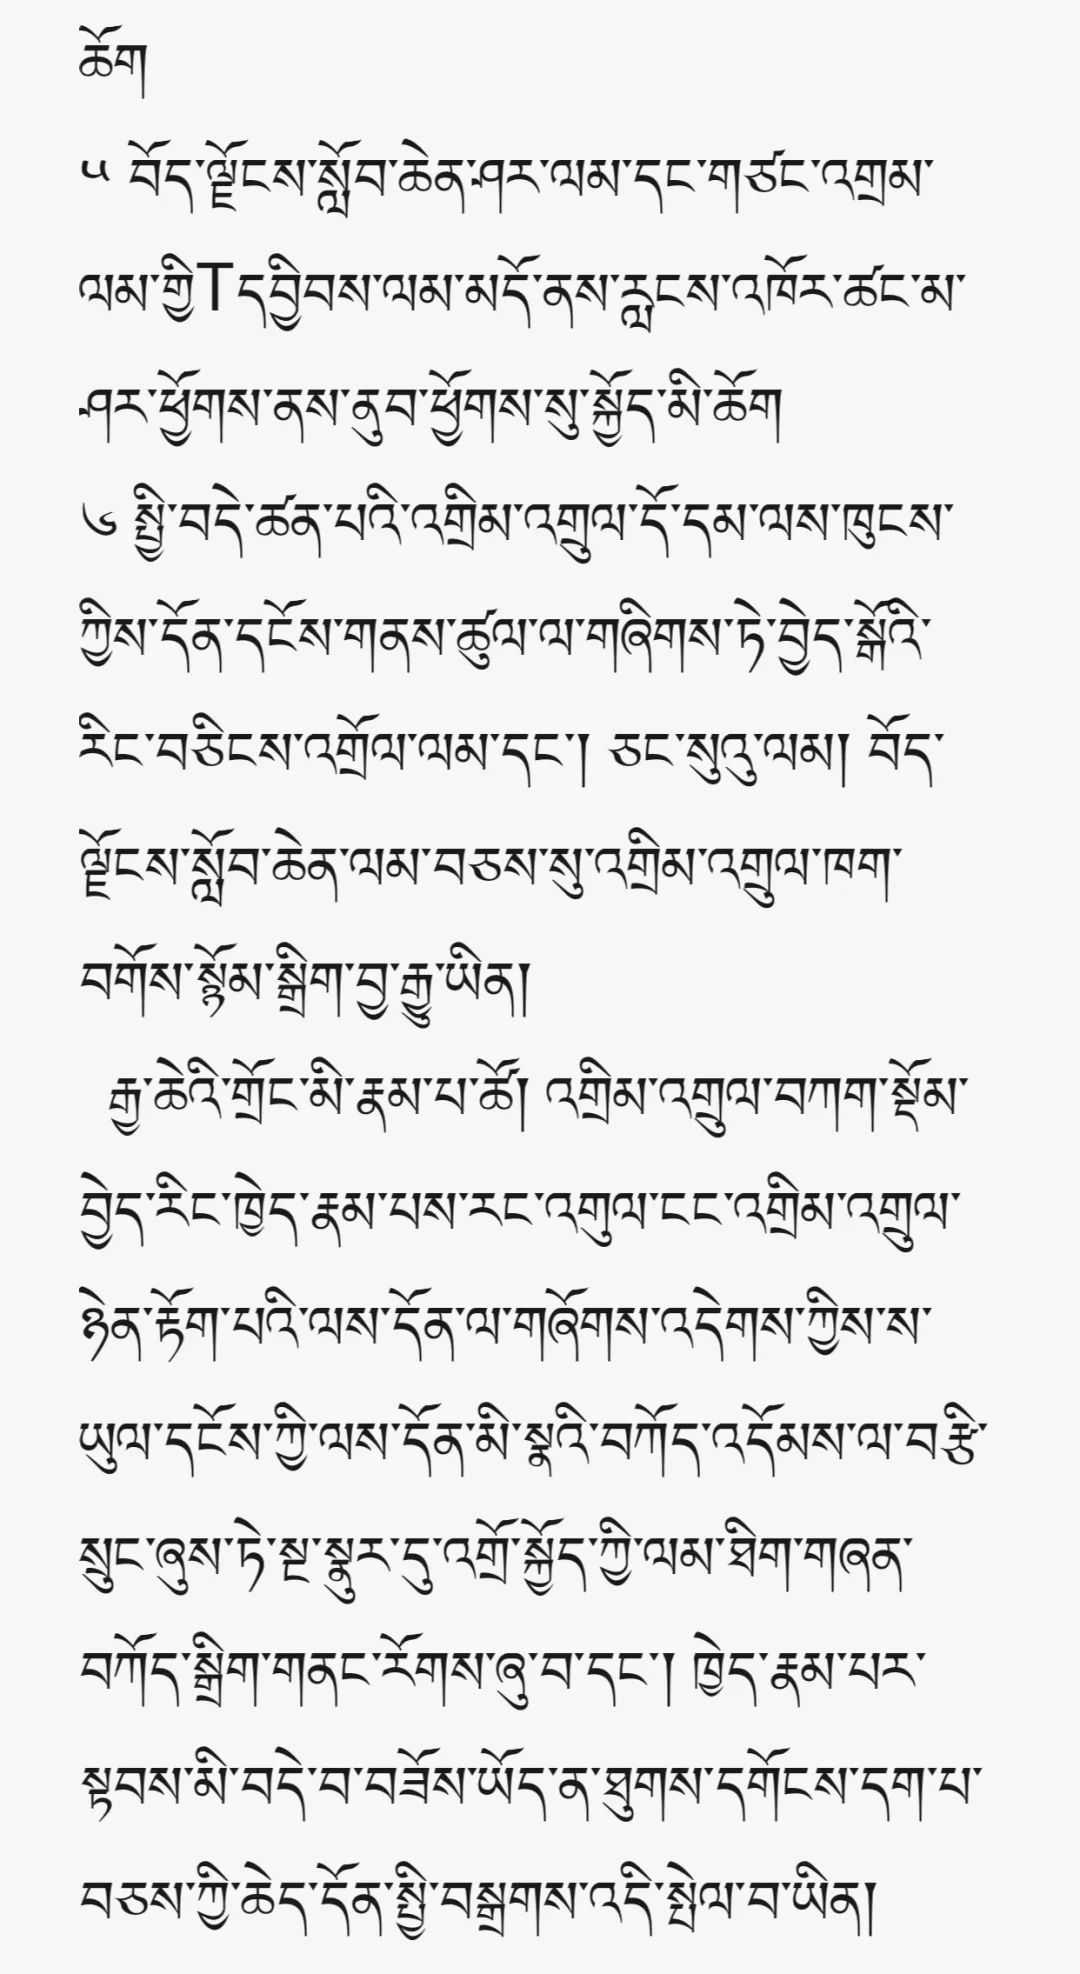 ཆོག
༥ བོད་ལྗོངས་སློབ་ཆེན་ཤར་ལམ་དང་གཙང་འགྲམ་
ལམ་གྱིTདབྱིབས་ལམ་མདོ་ནས་རླངས་འཁོར་ཚང་མ་
ཤར་ཕྱོགས་ནས་ནུབ་ཕྱོགས་སུ་སྐྱོད་མི་ཆོག
༦ སྤྱི་བདེ་ཚན་པའི་འགྲིམ་འགྲུལ་དོ་དམ་ལས་ཁུངས་
ཀྱིས་དོན་དངོས་གནས་ཚུལ་ལ་གཞིགས་ཏེ་བྱེད་སྒོའི་
རིང་བཅིངས་འགྲོལ་ལམ་དང་། ཅང་སུའུ་ལམ། བོད་
ལྗོངས་སློབ་ཆེན་ལམ་བཅས་སུ་འགྲིམ་འགྲུལ་ཁག་
བགོས་སྙོམ་སྒྲིག་བྱ་རྒྱུ་ཡིན།
རྒྱ་ཆེའི་གྲོང་མི་རྣམ་པ་ཚོ། འགྲིམ་འགྲུལ་བཀག་སྡོམ་
བྱེད་རིང་ཁྱེད་རྣམ་པས་རང་འགུལ་ངང་འགྲིམ་འགྲུལ་
ཉེན་རྟོག་པའི་ལས་དོན་ལ་གཞོགས་འདེགས་ཀྱིས་ས་
ཡུལ་དངོས་ཀྱི་ལས་དོན་མི་སྣའི་བཀོད་འདོམས་ལ་བརྩི་
སྲུང་ཞུས་ཏེ་སྔ་སྣུར་དུ་འགྲོ་སྐྱོད་ཀྱི་ལམ་ཐིག་གཞན་
བཀོད་སྒྲིག་གནང་རོགས་ཞུ་བ་དང་། ཁྱེད་རྣམ་པར་
སྟབས་མི་བདེ་བ་བཟོས་ཡོད་ན་ཐུགས་དགོངས་དག་པ་
བཅས་ཀྱི་ཆེད་དོན་སྤྱི་བསྒྲགས་འདི་སྤེལ་བ་ཡིན།